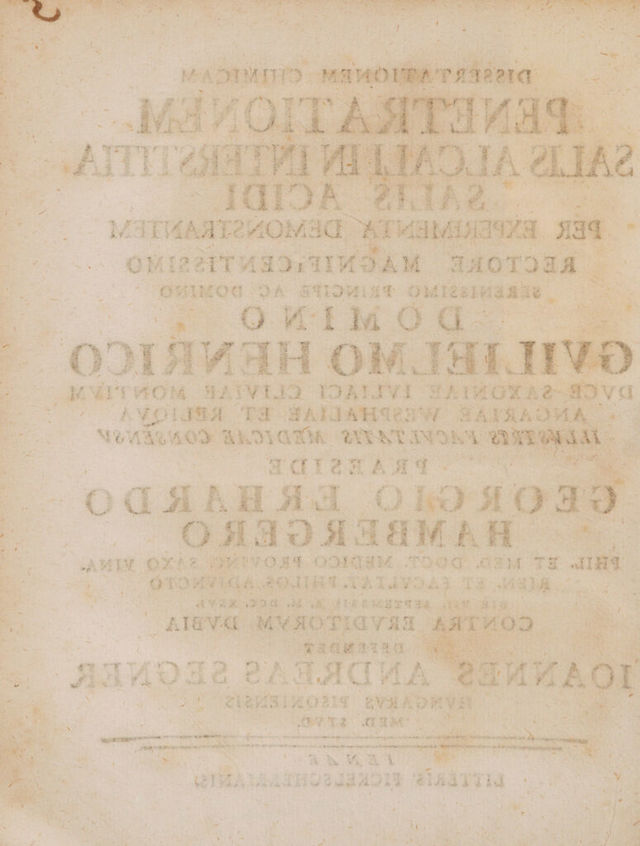 DISSERTATIONEM CHIMICAM
PENETRATIONEM
SALIS ALCALI IN INTERSTITIA
SALIS ACIDI
PER EXPERIMENTA DEMONSTRANTEM
RECTORE MAGNIFICENTISSIMO
SERENISSIMO PRINCIPE AC DOMINO
DOMINO
GVILIELMO HENRICO
DVCE SAXONIAE IVLIACI CLIVIAE MONTIVM
ANGARIAE WESPHALIAE ET RELIQVA
ILLVSTRIS FACVLTATIS MEDICAE CONSENSV
PRAESIDE
GEORGIO ERHARDO
HAMBERGERO
PHIL. ET MED. DOCT. MEDICO PROVINC. SAXO VINA.
RIEN. ET FACVLTAT. PHILOS. ADIVNCTO
SEPTEMBRIS
CONTRA ERVDITORVM DVBIA
DEFENDET
IOANNES ANDREAS SEGNER
HVNGARVS PISONIENSIS
MED. STVD.
IENAE
LITTERIS FICKELSCHERRIANIS